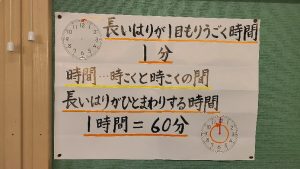 長いはりが1目もりうごく時間
1分
時間…時こくと時こくの間
長いはりがひとまわりする時間
1時間=60分